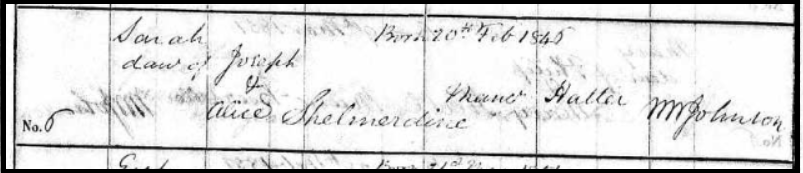 Sarah
daur of
Joseph
&
Alice
Shelmerdine
Born 20th Feb 1845
Manr
Hatter
W Johnson
No. 6